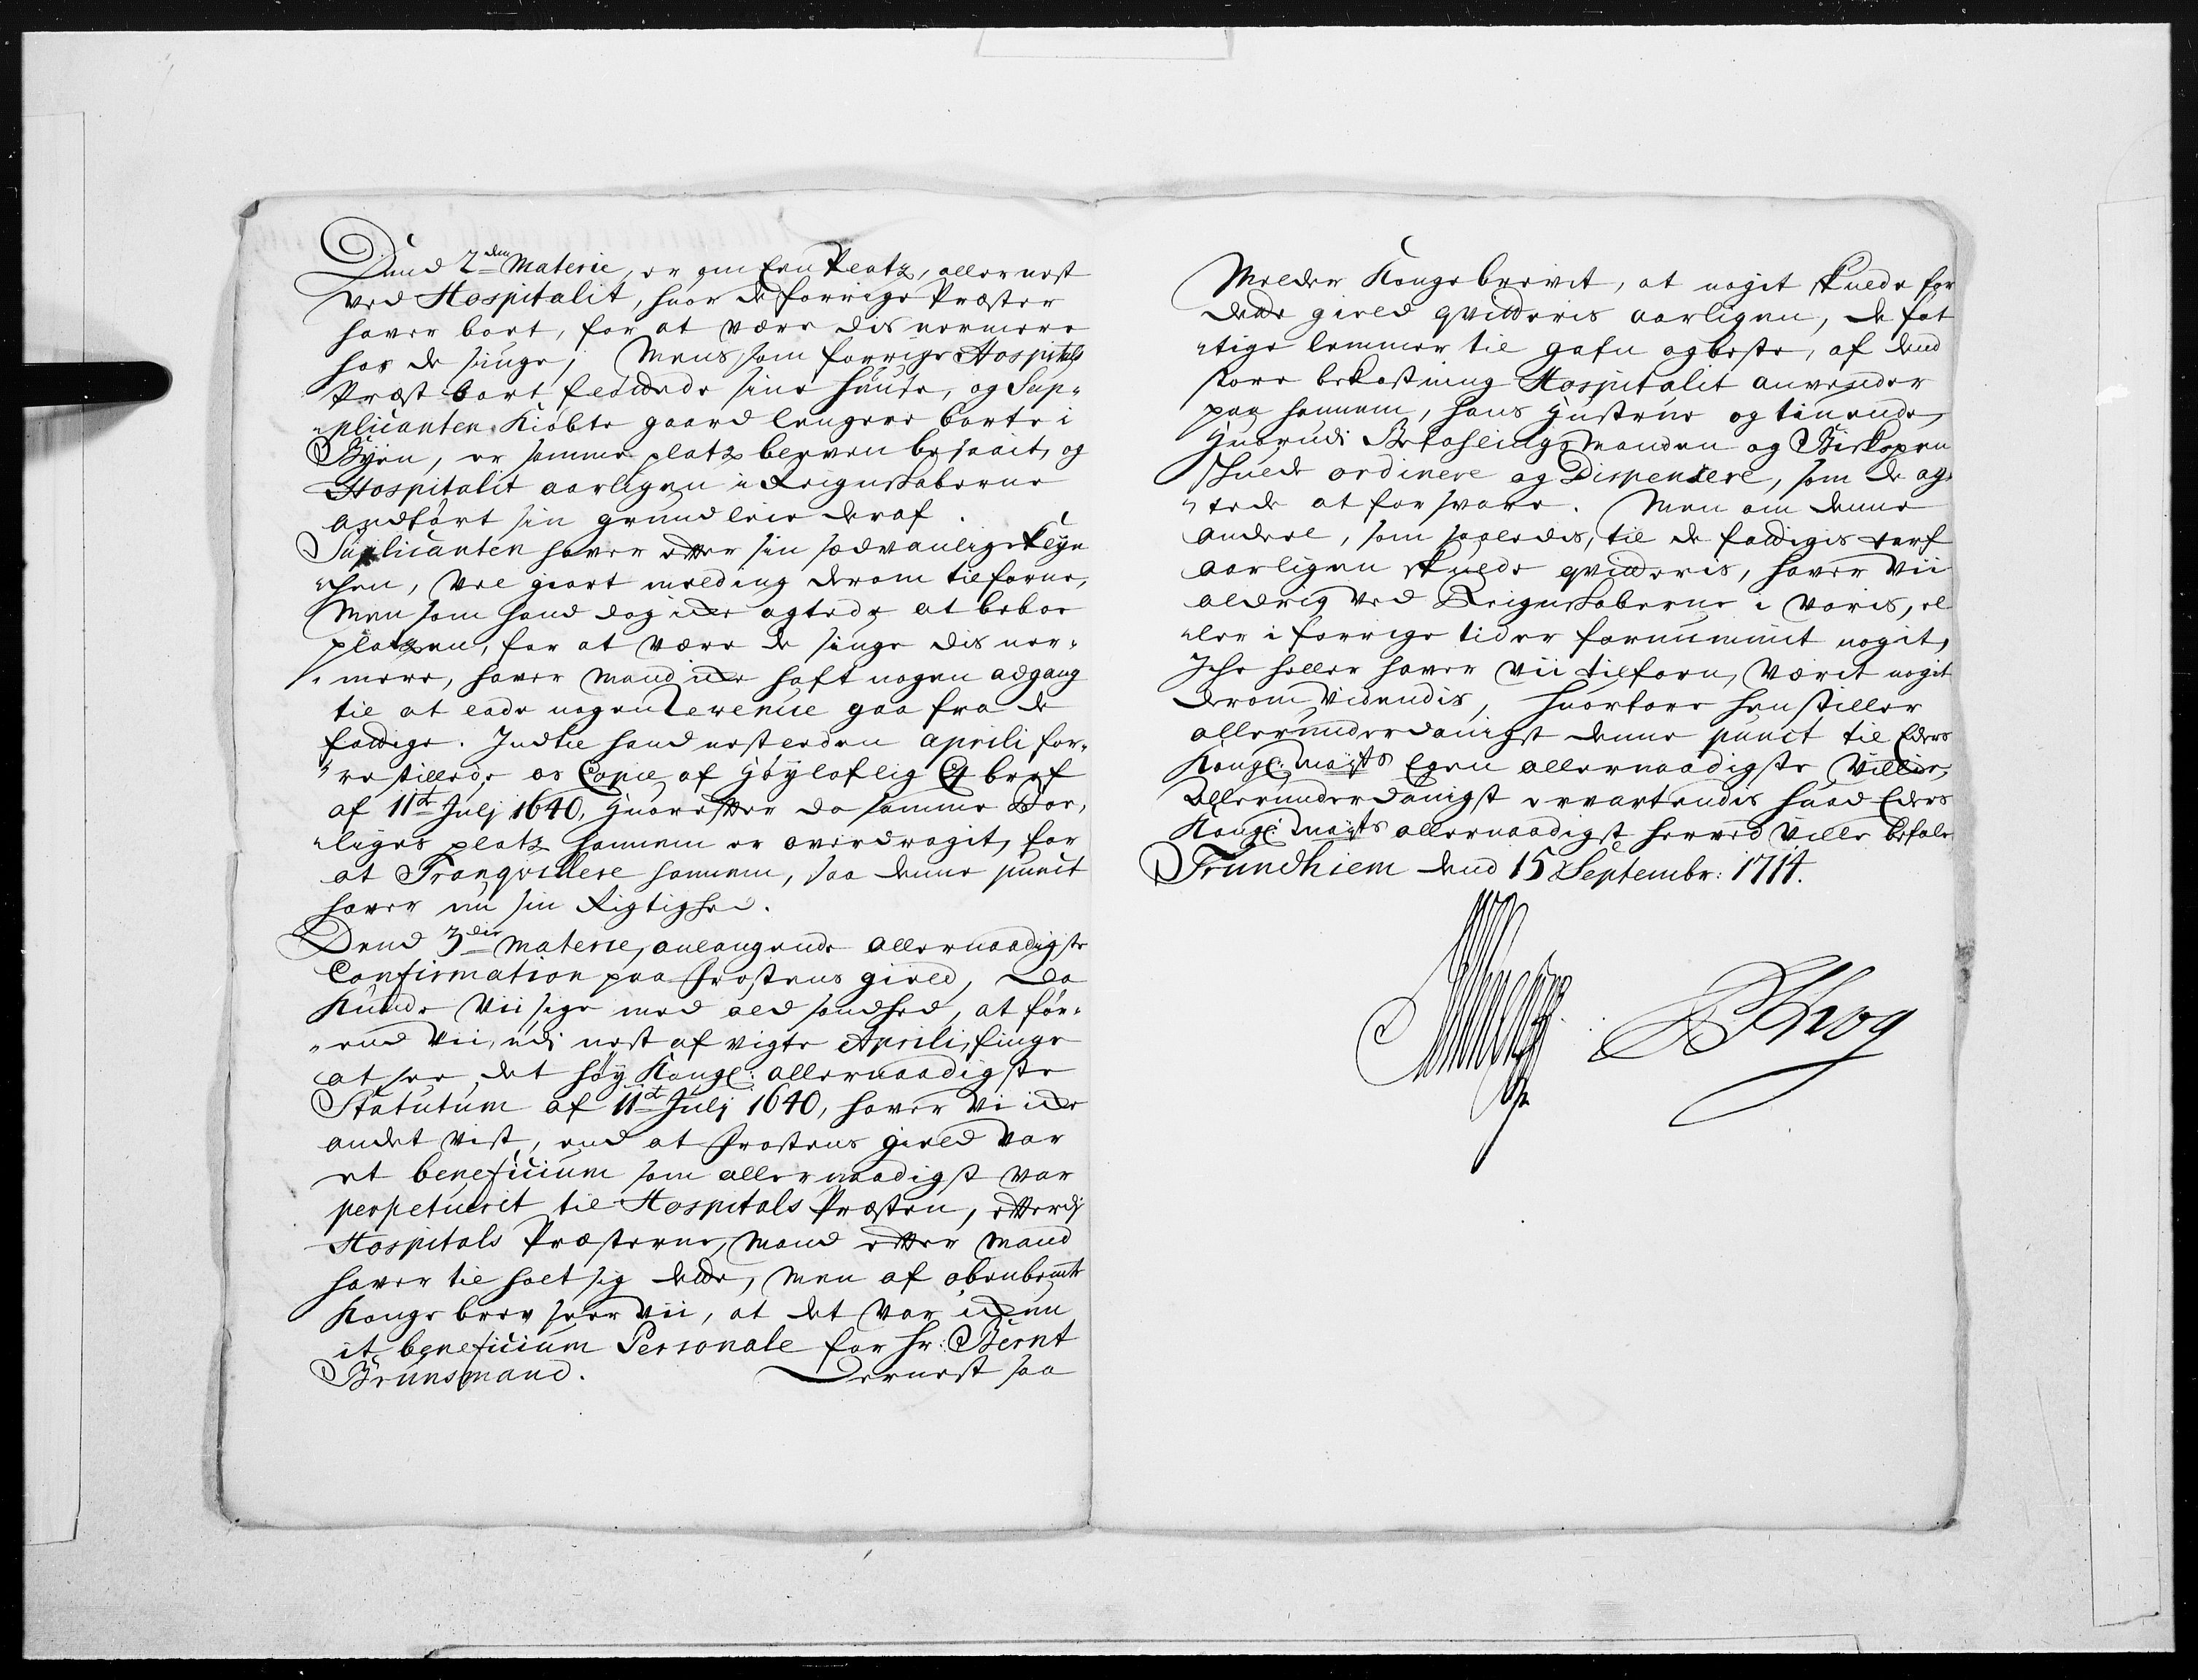 Dend 2den Materie, er om Een Platz, aller nest
ved Hospitalit, hvor de forrige Præster
haver boet, for at være dis nermere
hos de siuge; Mens som forrige Hospitals
Præst bort fløttede sine Huuse, og Sup-
plicanten Kiøbte gaard lengere borte i
Byen, er samme platz bleven besaait, og
Hospitalit aarligen i Reignskaberne
andført sin grundleie deraf.
Suplicanten haver etter sin sædvanlige Fly
hen, vel giort melding derom tilforne,
Men som hand dog icke agtede at beboe
platzen, for at være de siuge dis ner-
mere, haver Mand icke haft nogen adgang
til at lade nogen Revenue gaa fra de
fattige. Indtil hand nest leden Aprili for-
restillede os Copie af Høyloflig C4 bref
af 11te Julj 1640, Hvorefter da samme
liges platz hannem er overdragit, for
at Tranqvillere hannem, saa denne punct
haver nu sin Rigtighed.
Dend 3die Materie, anlangende allernaadigste
Confirmation paa Provstens gield, Da
Kunde Vii sige med ald sandhed, at før-
end Vii, udi nest afvigte Aprili, finge
at see, det høy Kongl: allernaadigste
Statutum af 11te Julj 1640, haver Vi icke
andet vist, end at Provstens gield var
et beneficium som allernaadigst var
perpetuerit til Hospitals Præsten, etterdj
Hospitals Præsterne, Mand etter Mand
haver til holt sig dette, Men af obenbemte
Konge brev seer Vii, at det var icken
it beneficium Personale for Hr: Bernt
Brunsmand. Dernest saa
Melder Kongebrevet, at nogit skulde for
dette gield qvitteris aarligen, de fat
tige lemmer til gafn og beste, af dend
store bekostning Hospitalit anvender
paa hannem, hans Hustrue og tienende,
Hvorudi Befahlingsmanden og Biskopen
skulde ordinere og Dispensere, som de ag-
tede at forsvare. Men om denne
andeel, som saaledis, til de fattigis tarf
aarligen skulde qvitteris, haver Vii
aldrig ved Reignskaberne i Voris, el
ler i forrige tider fornummit nogit,
Icke heller haver Vii tilforn, Værit nogit
derom Videndis, Hvorfore henstiller
allerunderdanigst denne punct til Eders
Kongl: Mayts Egen allernaadigste Villie,
Allerunderdanigst ervartendis hvad Eders
Kongl: Mayts allernaadigst herved Ville befale
Trundhiem dend 15 Septembr: 1714.
P Krog